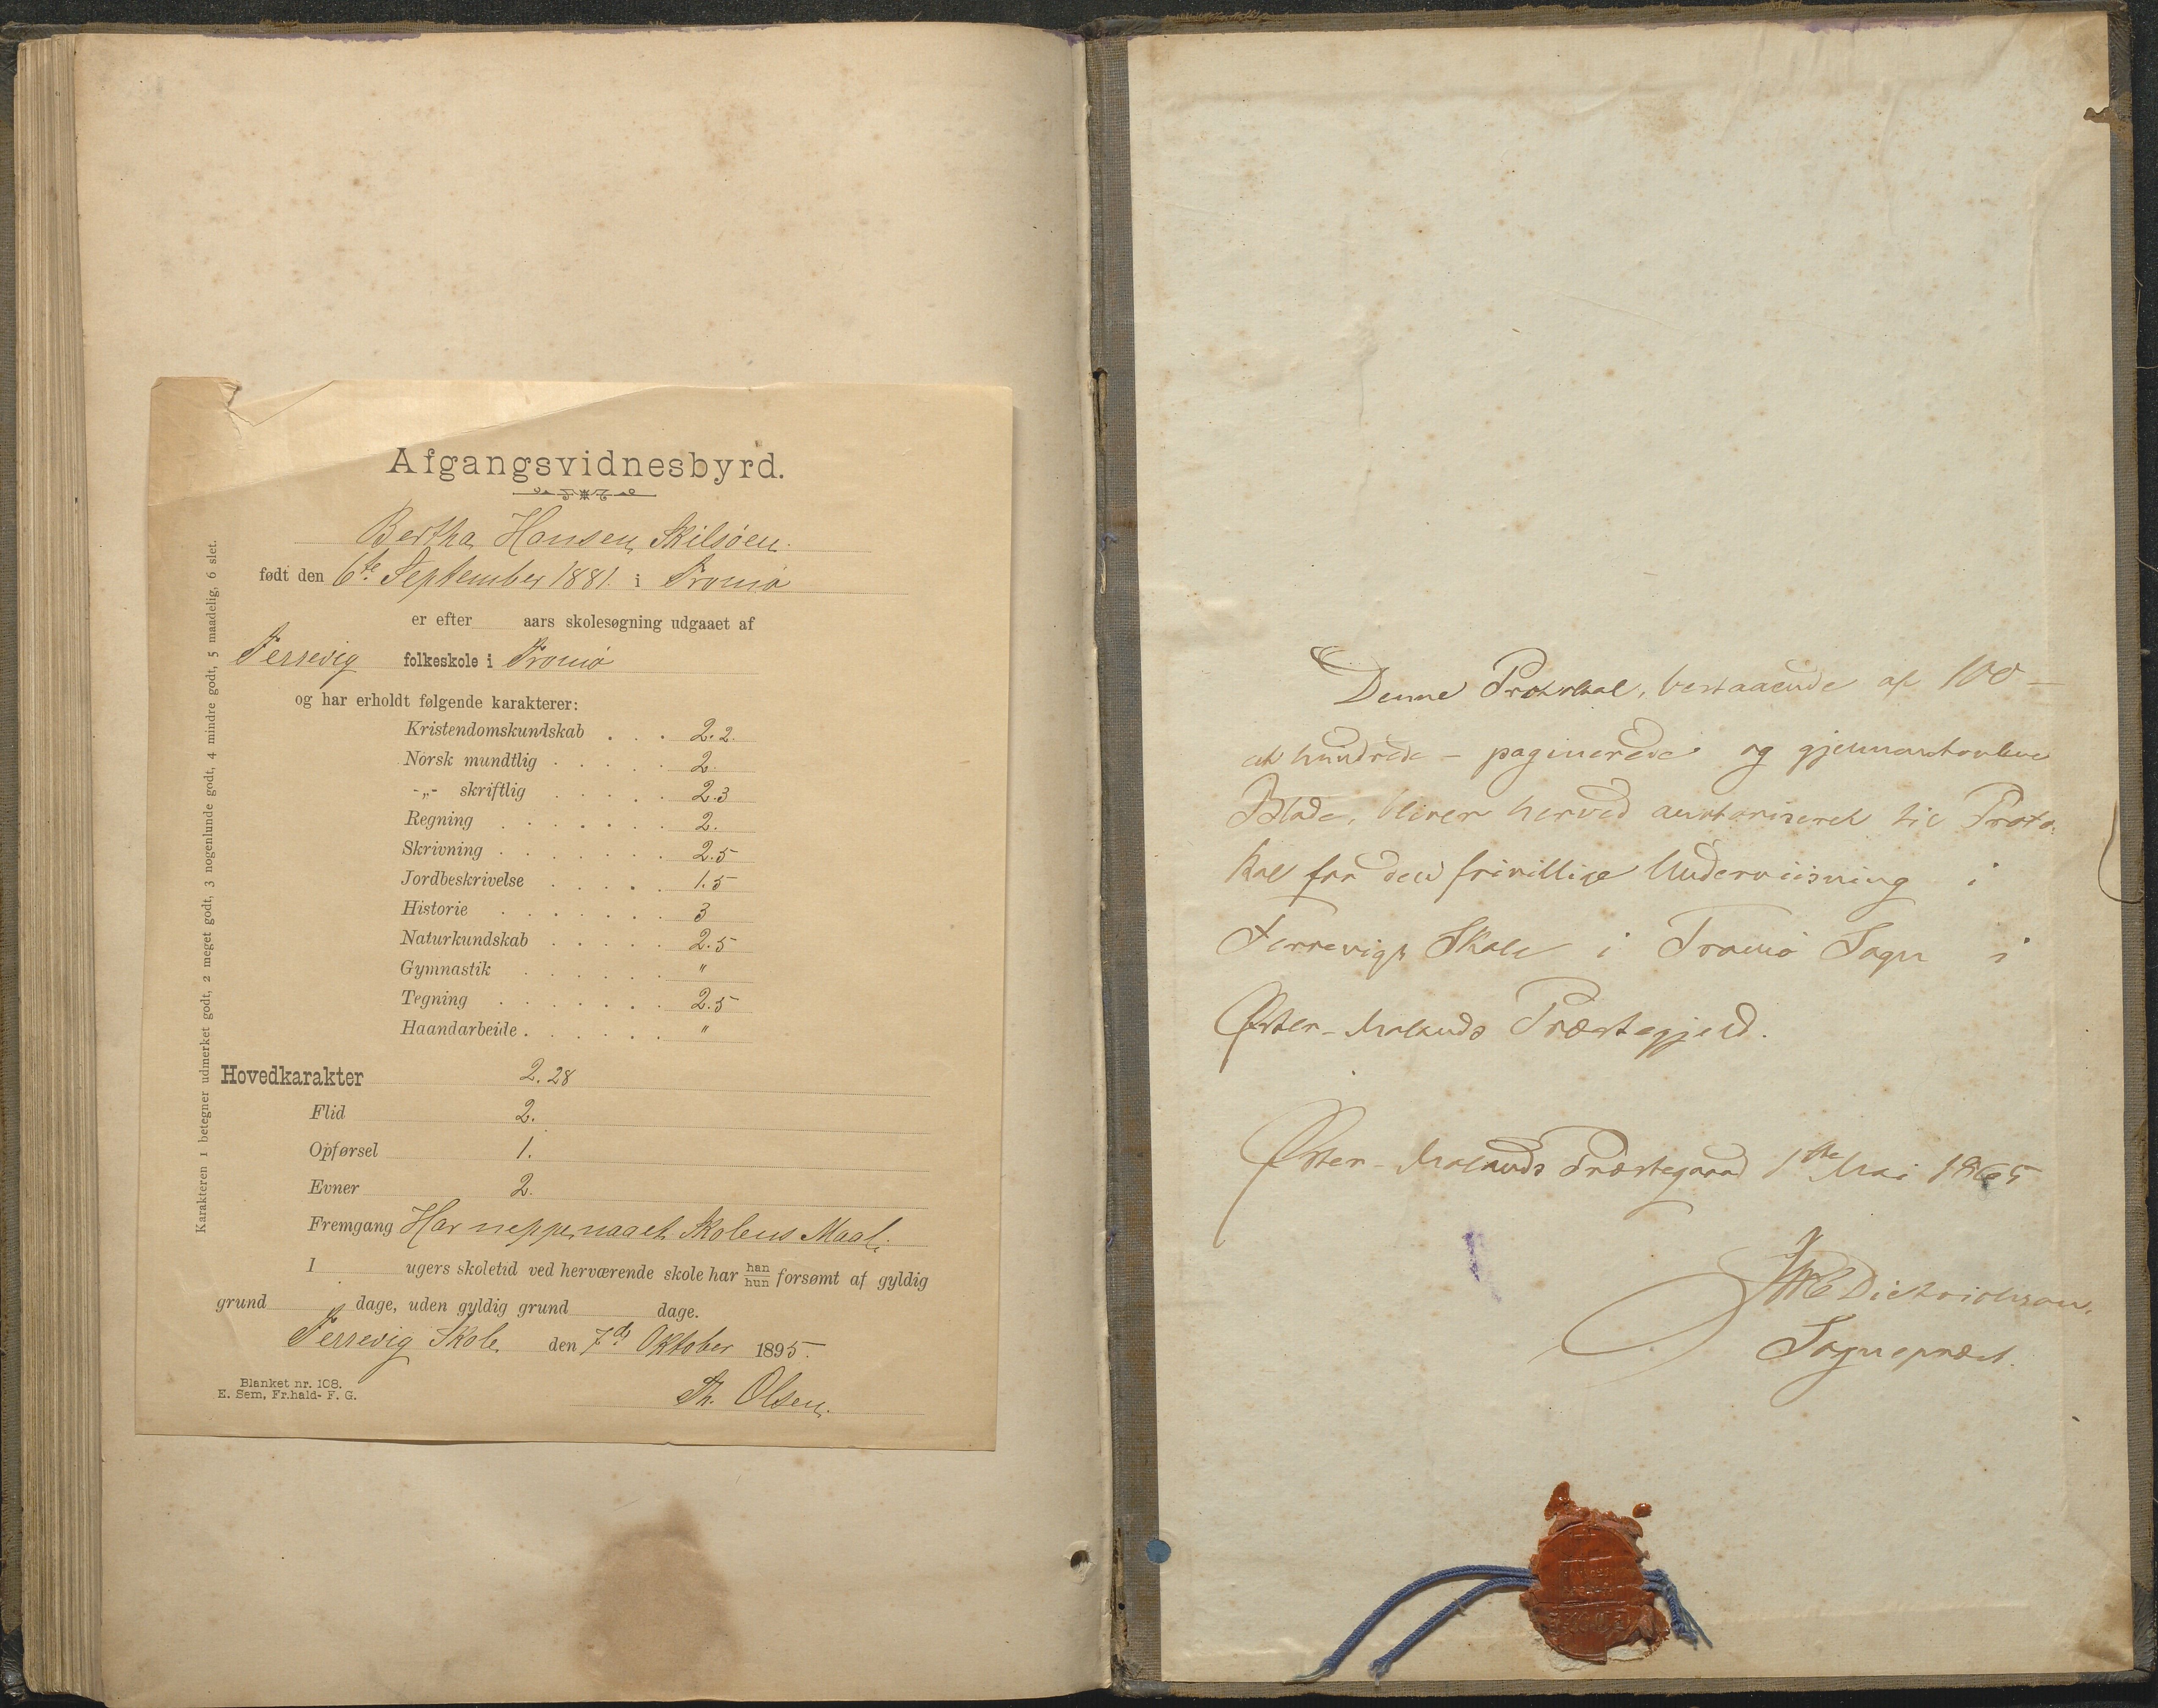 Afgangsvidnesbyrd.
Bertha Hansen, Skilsøen.
født den 6te September 1881. i Tromø
er efter aars skolesøgning udgaaet af
Færrevig folkeskole i Tromø
og har erholdt følgende karakterer:
Kristendomskundskab . . . 2.2.
Norsk mundtlig . . . . . 2
-„- skriftlig . . . . . 2.3
Regning . . . . . . . 2.
Skrivning . . . . . . . 2.5
Jordbeskrivelse . . . . . 1.5
Historie . . . . . . . 3
Naturkundskab . . . . . 2.5
Gymnastik . . . . . . "
Tegning . . . . . . . 2.5
Haandarbeide . . . . . . "
Hovedkarakter 2.28
Flid 2.
Opførsel 1.
Evner 2.
Fremgang Har neppe naaet Skolens Maal.
I ugers skoletid ved herværende skole har han/hun forsømt af gyldig
grund dage, uden gyldig grund dage.
Færrevig Skole, den 7d. Oktober 1895.
Th. Olsen.
Blanket nr. 108.
E. Sem, Fr.hald- F. G.
Karakteren 1 betegner udmerket godt, 2 meget godt, 3 nogenlunde godt, 4 mindre godt, 5 maadelig, 6 slet.
Denne Protokol, bestaaende af 100 –
et hundrede – paginerede og gjennemdragne
Blade, bliver herved autoriseret til Proto-
kol for den frivillige Underviisning i
Færrevigs Skole i Tromø Sogn i
Øster-Molands Præstegjeld.
Øster-Molands Præstegaard 1ste Mai 1865
Dietrichson.
Sognepræst.